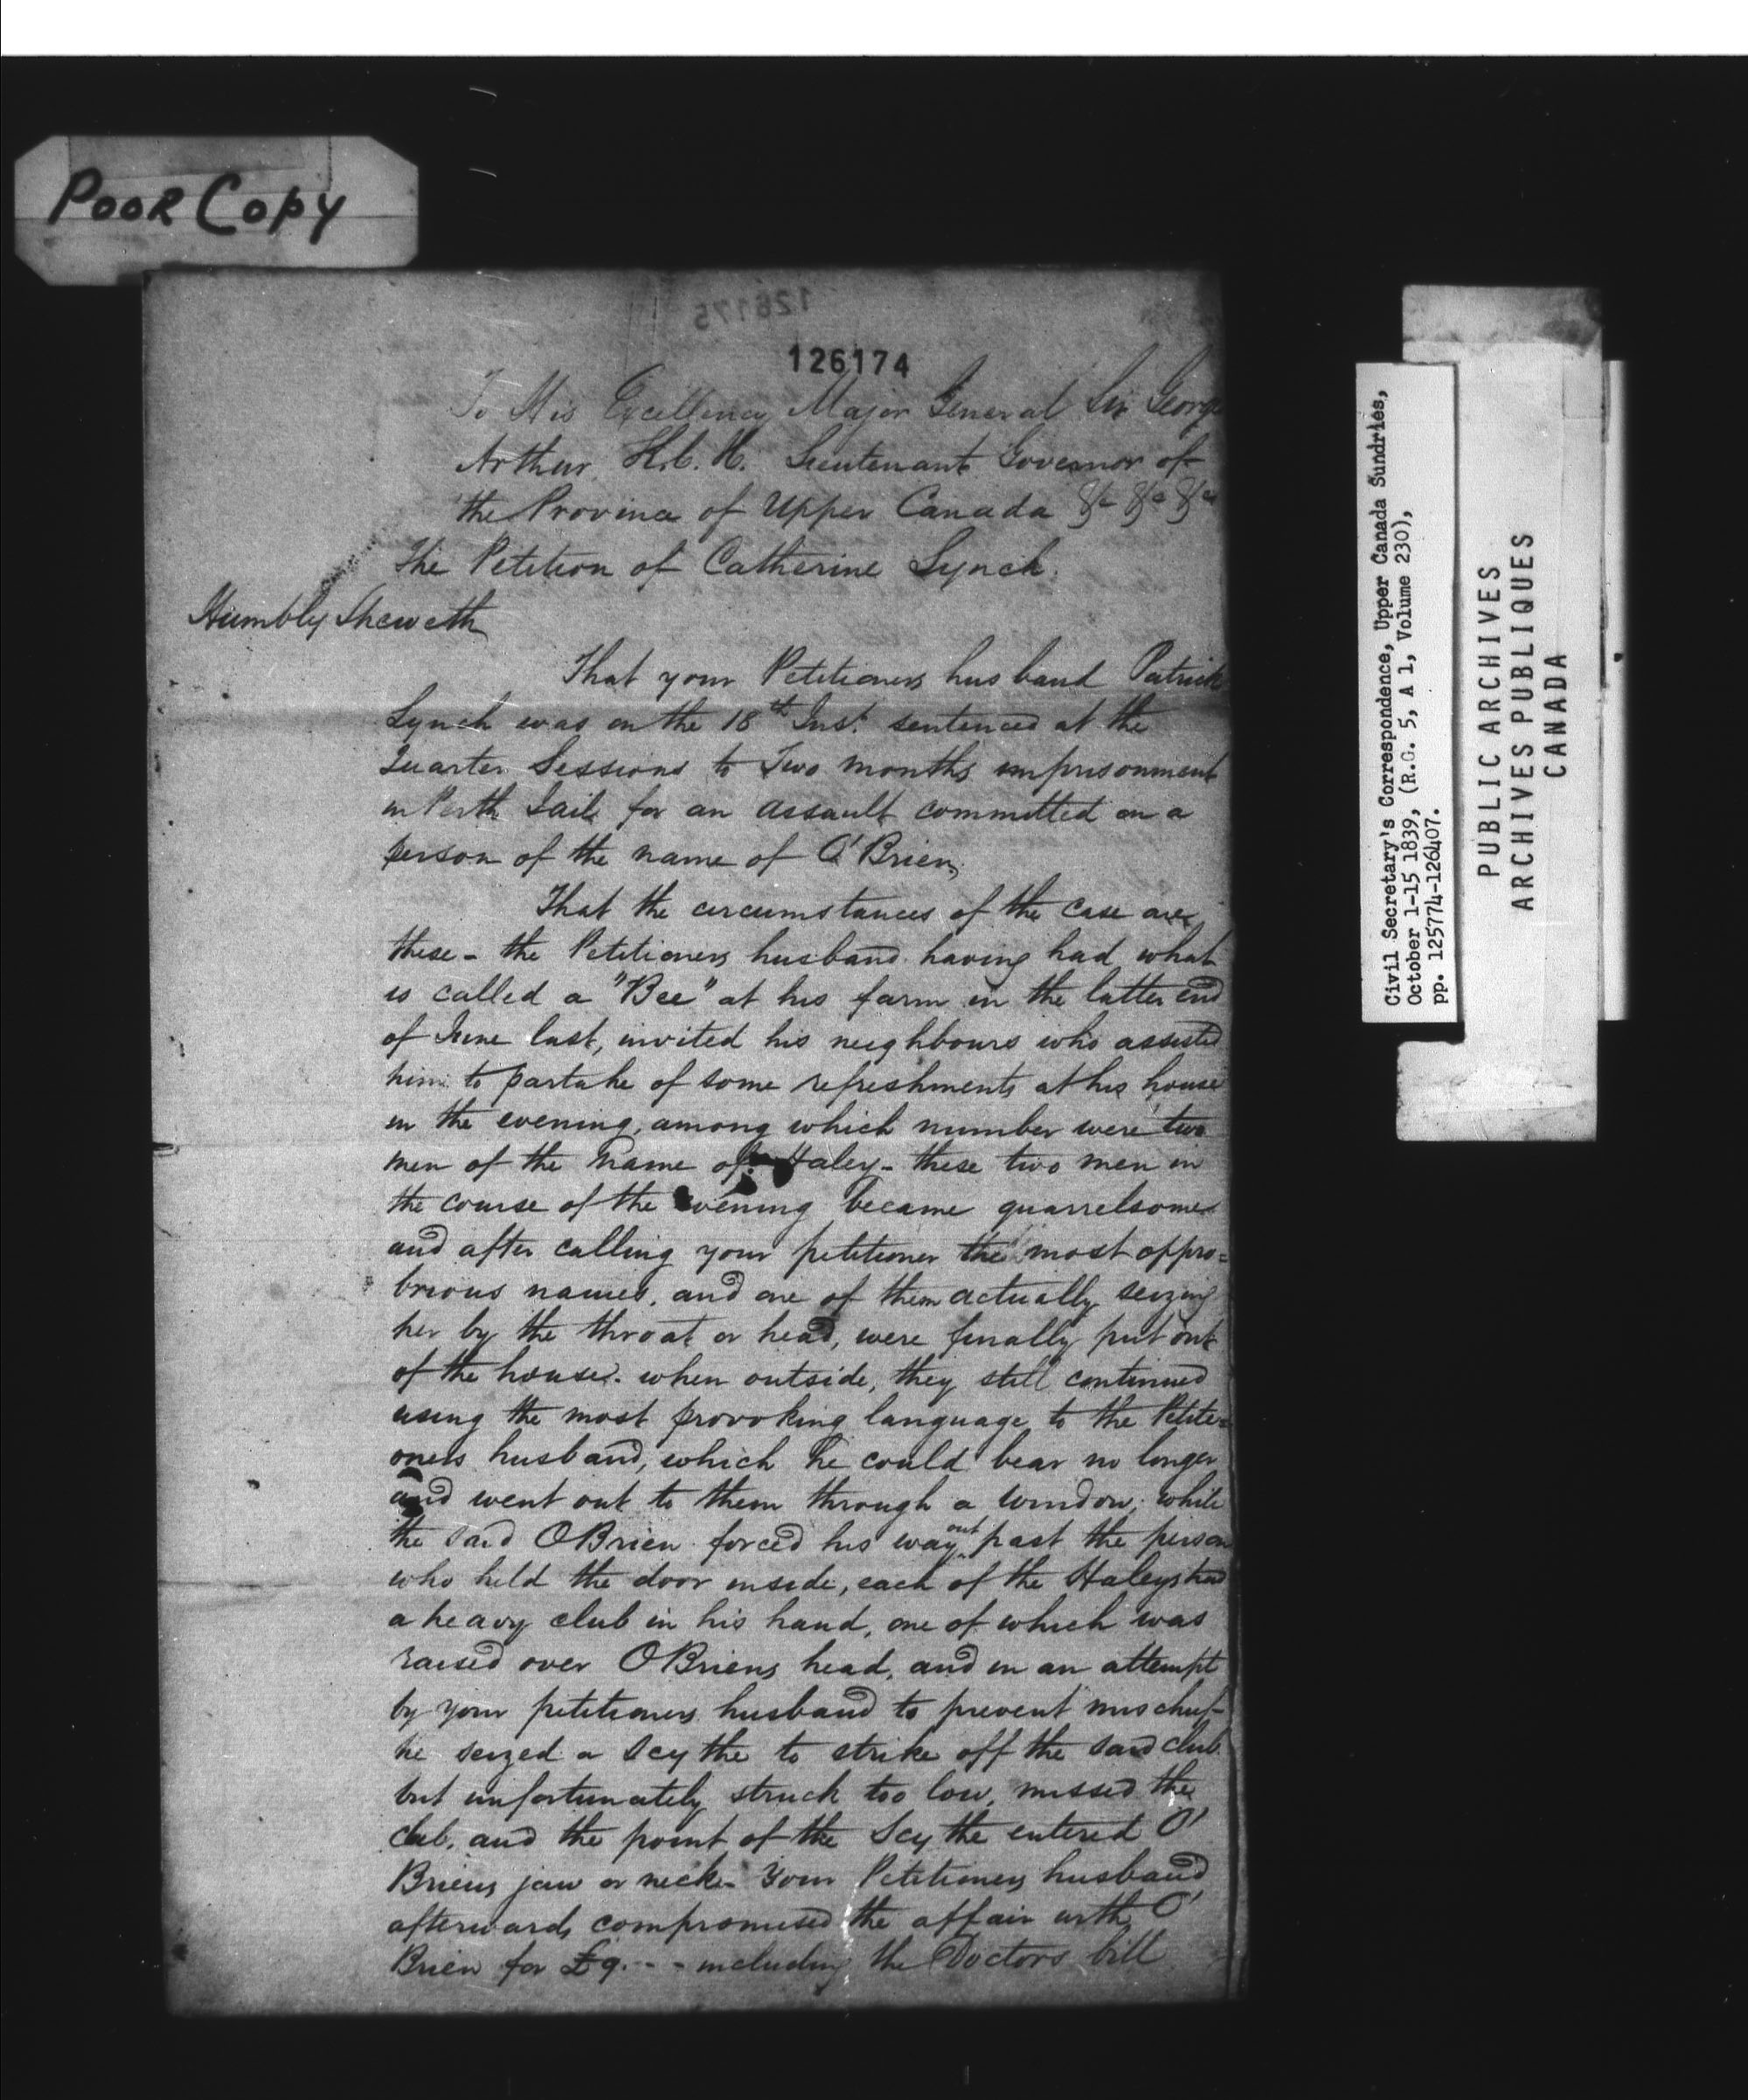 POOR COPY
126175
126174
To His Excellency Major General Sir George
Arthur K.C.H. Lieutenant Governor of
the Province of Upper Canada &c &c &c
The Petition of Catherine Lynch.
Humbly Sheweth
That your Petitioners husband Patrick
Lynch was on the 18th Inst. sentenced at the
Quarter Sessions to Two months imprisonment
in Perth Gail for an assault committed on a
person of the name of O'Brien,
That the circumstances of the case are,
these - the Petitioners husband having had what
is called a "Bee" at his farm in the latter end
of June last, invited his neighbours who assisted
him to partake of some refreshments at his house
in the evening, among which number were two
men of the name of Haley - these two men in
the course of the evening became quarrelsome
and after calling your petitioner the most oppro=
brious names, and one of them actually seizing
her by the throat or head, were finally put out
of the house. when outside, they still continued
using the most provoking language to the Petiti=
oners husband, which he could bear no longer
and went out to them through a window; while
the said OBrien forced his way out past the person
who held the door inside, each of the Haleys had
a heavy club in his hand, one of which was
raised over OBriens head, and in an attempt
by your petitioners husband to prevent mischief-
he seized a Scythe to strike off the said club
but unfortunately struck too low, missed the
club, and the point of the Scythe entered O'
Briens jaw or neck - Your Petitioners husband
afterwards compromised the affair with O'
Brien for £9. - - including the Doctors bill
Civil Secretary's Correspondence, Upper Canada Sundries,
October 1-15 1839, (R.G. 5, A 1, Volume 230),
pp. 125774-126407.
PUBLIC ARCHIVES
ARCHIVES PUBLIQUES
CANADA